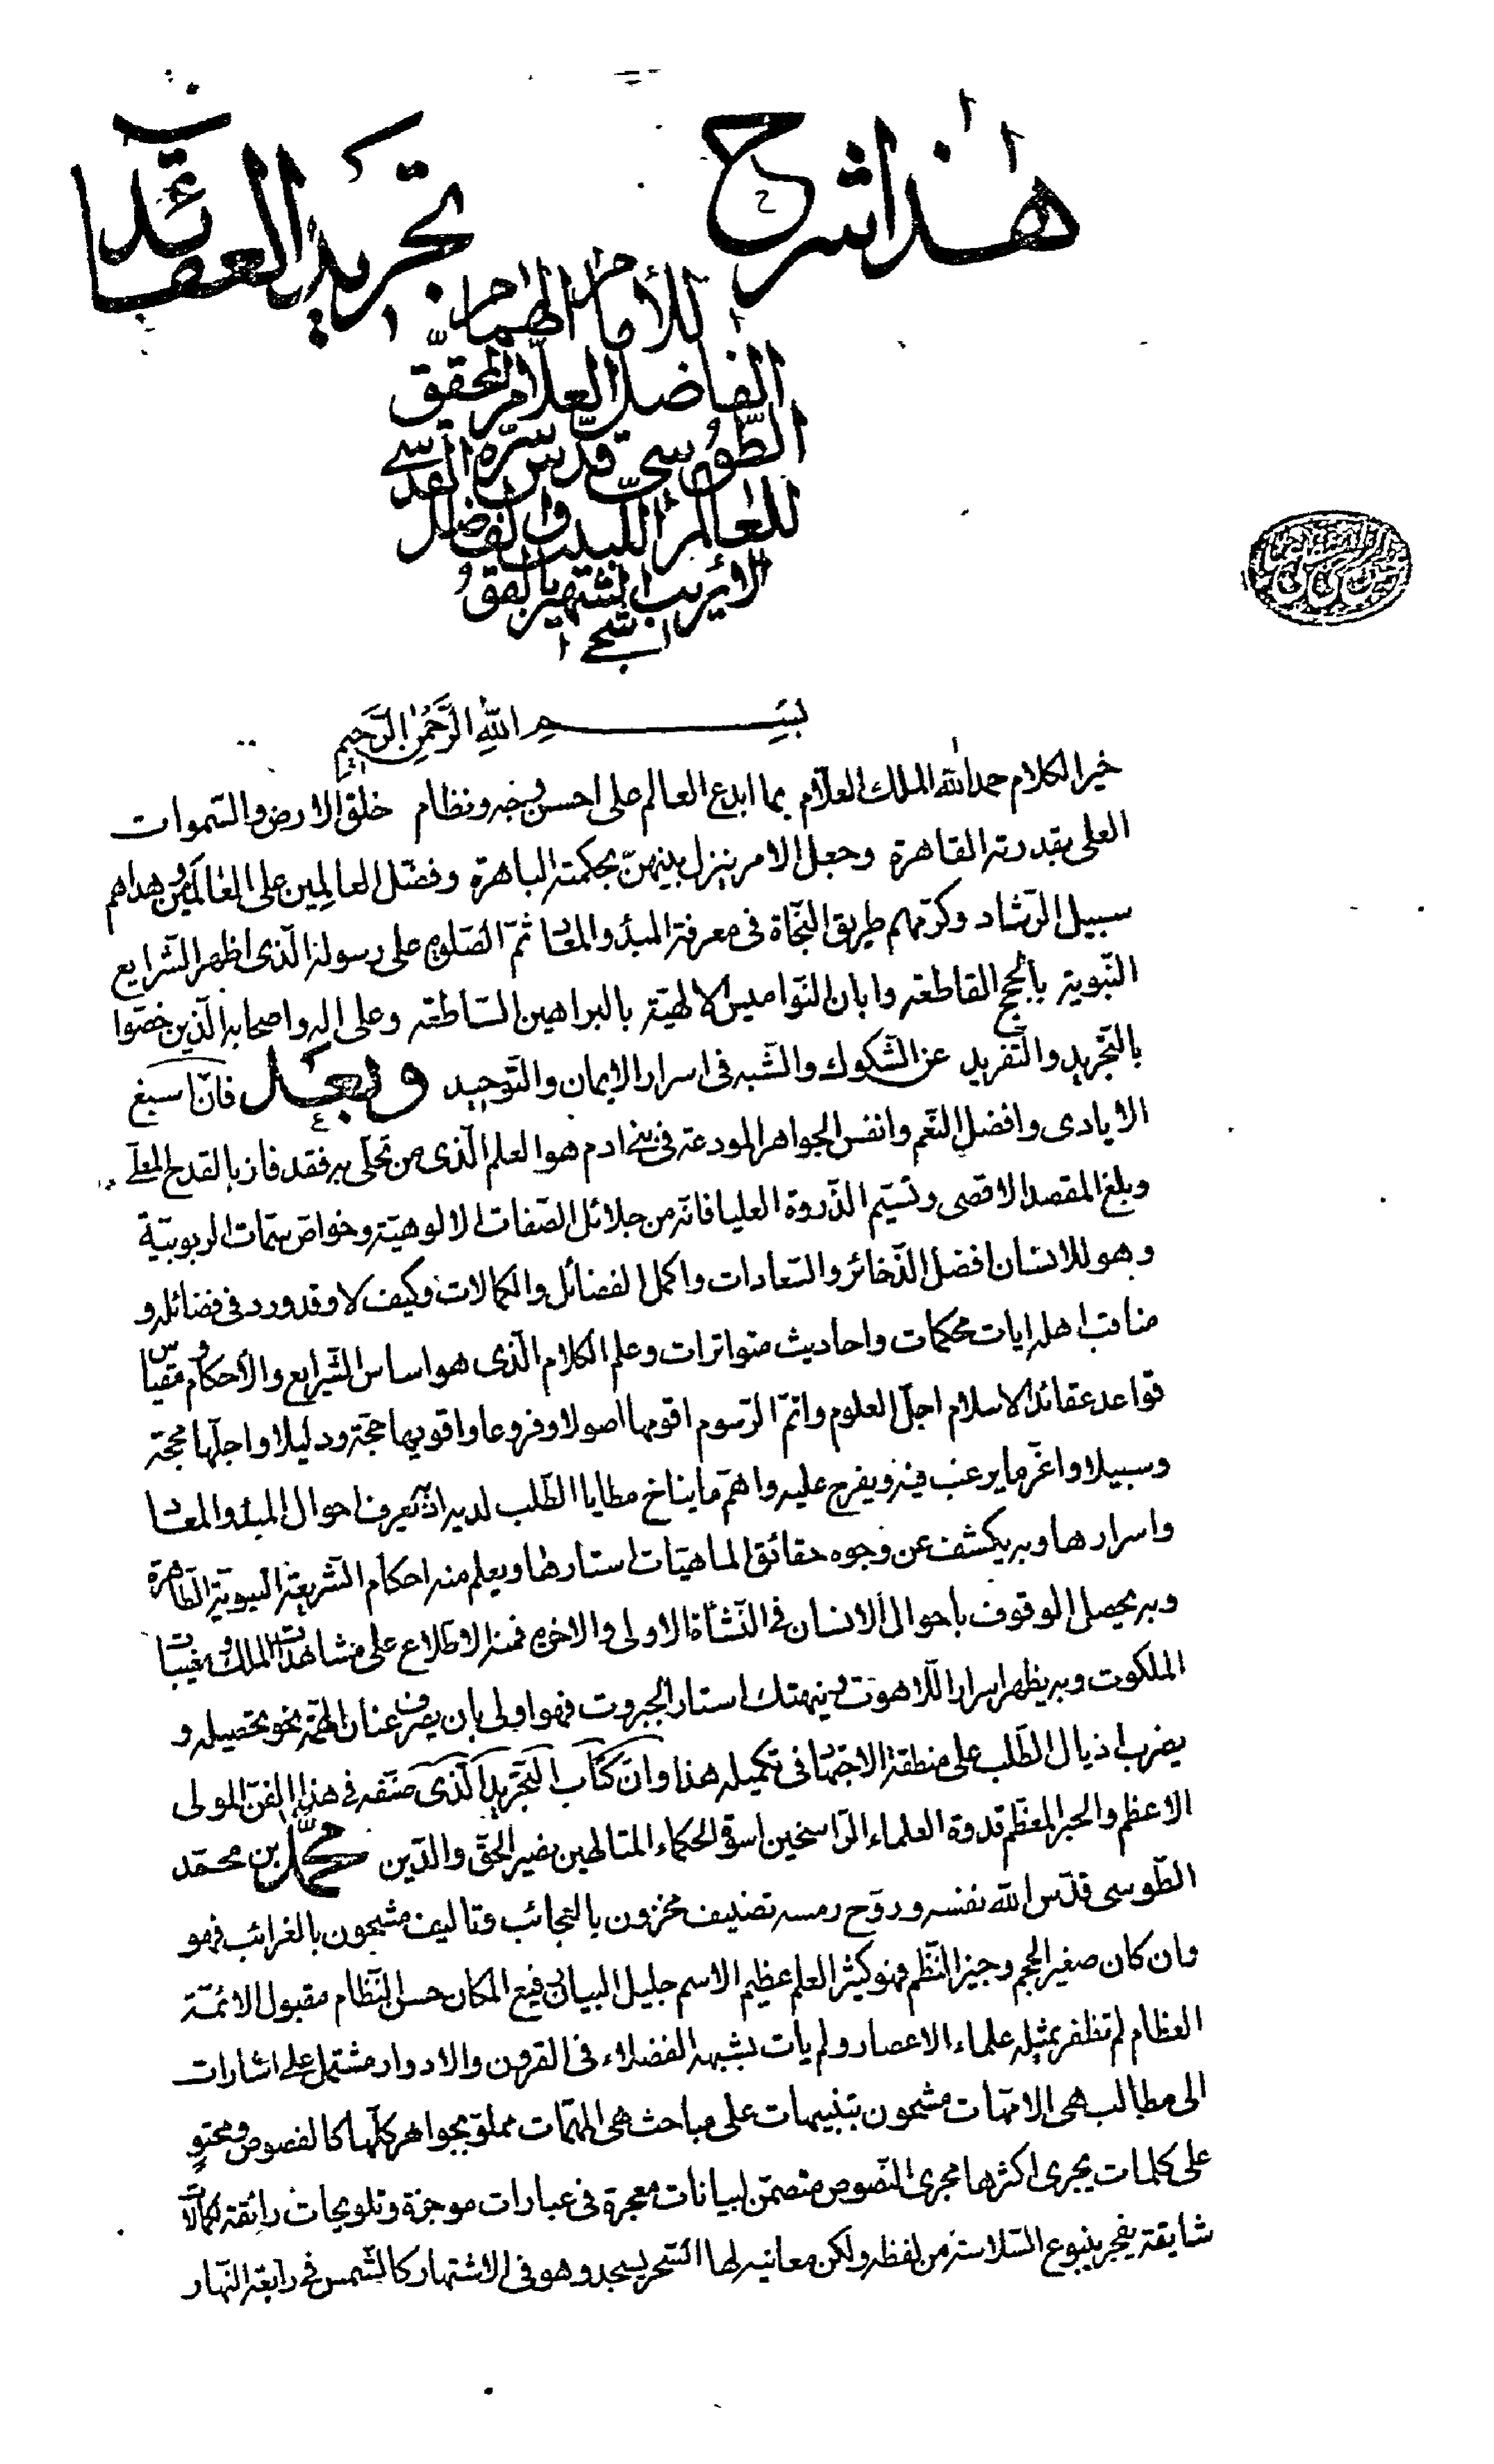 هذا شرح تجريد العقائد
للامام الهمام
الفاضل العلّام المحقّق
الطّوسىّ قدّس سرّه القدسے
للعالم اللبيب والفاضل
الاريب المشتهر بالقو
شجے
بسم الله الرّحمن الرّحيم
خير الكلام حمد الله الملك العلّام بما ابدع العالم على احسن وجه ونظام خلق الارض والسّموات
العلى بقدرته القاهرة وجعل الامر ينزل بينهنّ بحكمته الباهرة وفضّل العالِمين على العالَمين وهداهم
سبيل الرّشاد وكرّمهم طريق النّجاة فى معرفة المبدء والمعاد ثمّ الصّلوة على رسوله الّذى اظهر الشّرايع
النّبوية بالحجج القاطعه وابان النّواميس الالهيّة بالبراهين السّاطعه وعلى اله واصحابه الّذين خصّوا
بالتّجريد والتّفريد عن الشّكوك والشّبه فى اسرار الايمان والتّوحيد وبعد فانّ اسبغ
الايادى وافضل النّعم وانفس الجواهر المودعة فى بنى ادم هو العلم الّذى من تحلّى به فقد فاز بالقدح المعلّے
وبلغ المقصد الاقصى وتسنّم الذّروة العليا فانّه من جلائل الصّفات الالوهيّة وخواصّ سمات الربوبيّة
وهو للانسان افضل الذّخائر والسّعادات واكمل الفضائل والكمالات وكيف لا وقد ورد فى فضائله و
مناقب اهله ايات محكمات واحاديث متواترات وعلم الكلام الّذى هو اساس الشّرايع والاحكام ومقياس
قواعد عقائد الاسلام اجلّ العلوم واتمّ الرّسوم اقومها اصولا وفروعا واقويها حجّة ودليلا واجلّها محجّة
وسبيلا واعزّ ما يرغب فيه ويفرج عليه واهمّ ما يناخ مطايا الطّلب لديه اذ به يعرف احوال المبدء والمعاد
واسرارها وبه يكشف عن وجوه حقائق الماهيّات استارها ويعلم منه احكام الشّريعة النّبويّة الطّاهرة
وبه يحصل الوقوف باحوال الانسان فى النّشأة الاولى والاخرى فمنه الاطّلاع على مشاهدات الملك ومغيبات
الملكوت وبه يظهر اسرار اللّاهوت وينهتك استار الجبروت فهو اولى بان يصرف عنان الهمّة نحو تحصيله و
يضرب اذيال الطّلب على منطقة الاجتهاد فى تكميله هذا وانّ كتاب التّجريد الّذى صنّفه فى هذا الفنّ المولى
الاعظم والحبر المعظّم قدوة العلماء الرّاسخين اسوة الحكماء المتالهين نصير الحقّ والدّين محمّد بن محمّد
الطّوسى قدّس الله نفسه وروّح رمسه تصنيف مخزون بالعجائب وتاليف مشحون بالغرائب فهو
وان كان صغير الحجم وجيز النّظم فهو كثير العلم عظيم الاسم جليل البيان رفيع المكان حسن النّظام مقبول الائمّة
العظام لم تظفر بمثله علماء الاعصار ولم يات بشبهه الفضلاء فى القرون والادوار مشتمل على اشارات
الى مطالب هى الامّهات مشحون بتنبيهات على مباحث هى المهمّات مملوّ بجواهر كلّها كالفصوص ومحتوٍ
على كلمات يجرى اكثرها مجرى النّصوص متضمّن لبيانات معجزة فى عبارات موجزة وتلويحات رائقة لكمالات
شايقة يفجر ينبوع السّلاسة من لفظه ولكن معانيه لها السّحر يسجد وهو فى الاشتهار كالشّمس فى رابعة النّهار